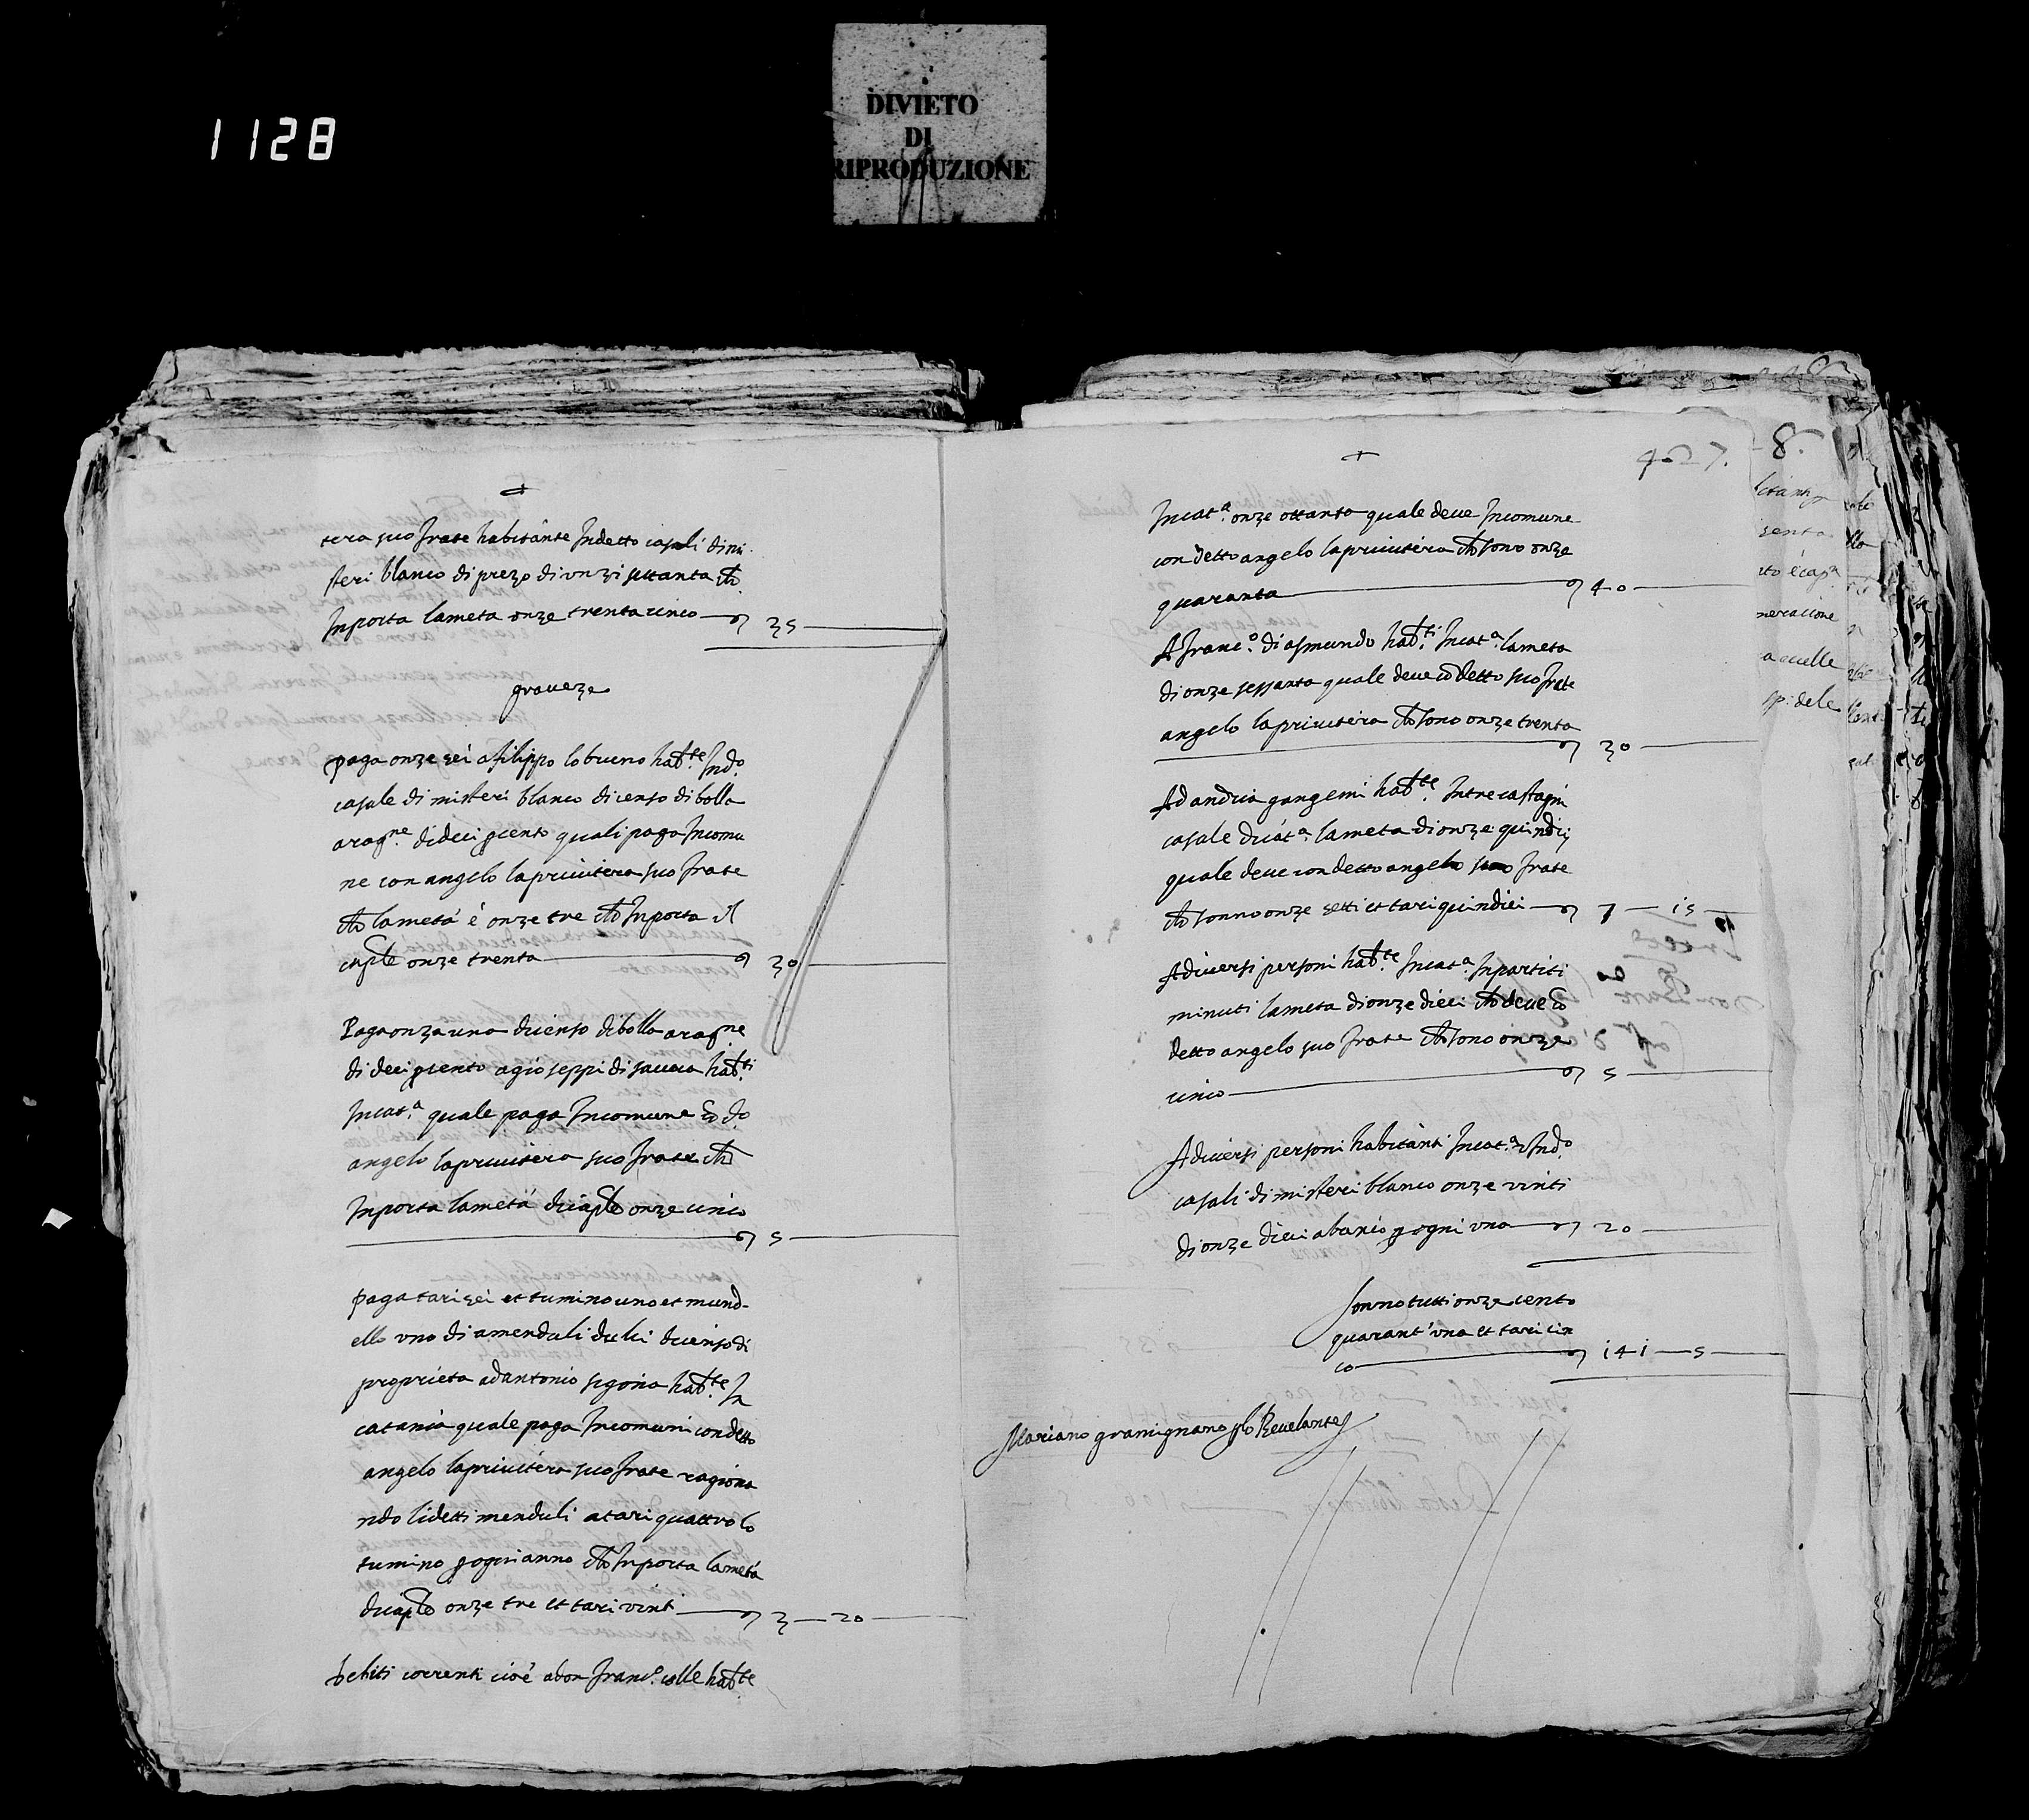 1128
DIVIETO
DI
RIPRODUZIONE
+
tera suo frate habitante In detto casali di mi
steri blanco di prezo di unzi settanta che
Inporta la meta onze trenta cinco — 35 —
graveze
paga onze sei a filippo lo bueno habte. In do.
casale di misteri blanco di censo di bolla
aragne. di deci per cento quali paga In comu
ne con angelo la privitera suo frate
che la metá è onze tre che Inporta il
caple onze trenta — 30 —
Paga onza una di censo di bolla aragne
di deci per cento a gioseppi di habti.
In cata. quale paga In comune co do.
angelo la privitera suo frate che
Inporta la metá di caple onze cinco
— 5 —
paga tari sei et tumino uno et mund-
ello uno di amenduli dulci di censo di
proprieta ad antonio habte. In
catania quale paga In comuni con detto
angelo la privitera suo frate ragiona
ndo li detti menduli a tari quattro lo
tumino per ogni anno che Inporta la metá
di caple onze tre et tari vinti — 3 — 20 —
Debiti correnti cioè a don franco. colle habte
+
427.
In cata. onze ottanta quale deve In comune
con detto angelo la privitera che sono onze
quaranta — 40 —
A franco. di asmundo habti. In cata. la meta
di onze sessanta quale deve co detto suo frate
angelo la privitera che sono onze trenta
— 30 —
Ad andria gangemi habte. In trecastagni
casale di cata. la meta di onze quindici
quale deve con detto angelo suo frate
che sonno onze setti et tari quindici — 7 — 15 —
A diversi personi habte. In cata. In partiti
minuti la meta di onze dieci che deve co
detto angelo suo frate che sono onze
cinco — 5 —
A diversi personi habitanti In cata. et In do.
casali di misteri blanco onze vinti
di onze dieci a bascio per ogni una — 20 —
Sonno tutti onze cento
quarant'una et tari cin
co — 141 — 5 —
Mariano gramignano per lo Revelante
8.